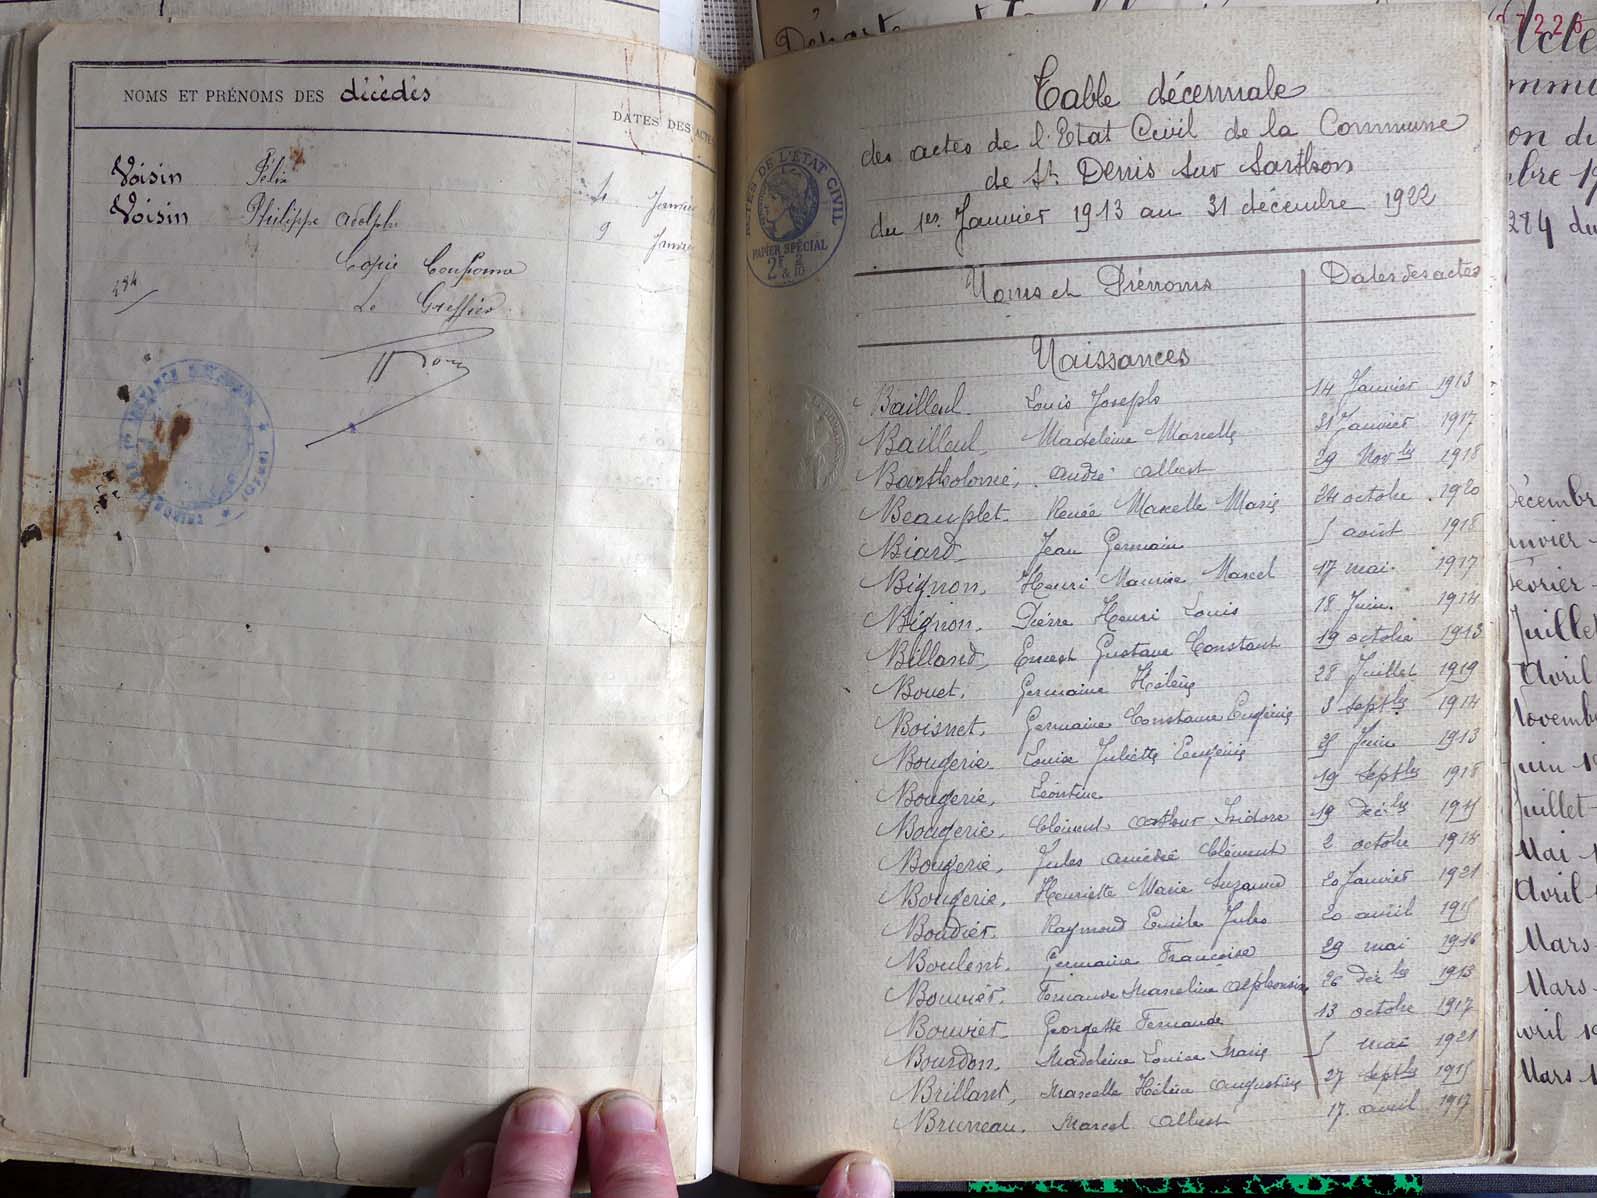 NOMS ET PRÉNOMS DES décédés
DATES DES ACTES
Voisin Félix 1 Janvier
Voisin Philippe Adolphe 9 Janvier
Copie Conforme
Le Greffier
Table décennale
des actes de l'Etat Civil de la Commune
de St Denis sur Sarthon
du 1er Janvier 1913 au 31 décembre 1922
ACTES DE L'ÉTAT CIVIL
PAPIER SPÉCIAL
Noms et Prénoms Dates des actes
Naissances
Bailleul Louis Joseph 14 Janvier 1913
Bailleul Madeleine Marcelle 21 Janvier 1917
Bartholomé, André Albert 29 Novbre 1918
Beauplet Renée Marcelle Marie 24 octobre 1920
Biard Jean Germain 5 août 1918
Bignon, Henri Maurice Marcel 17 mai 1917
Bignon, Pierre Henri Louis 18 Juin 1914
Billard, Ernest Gustave Constant 19 octobre 1913
Bouet, Germaine Hélène 28 Juillet 1919
Boisnet, Germaine Constance Eugénie 3 septbre 1914
Bougerie Louise Juliette Eugénie 25 Juin 1913
Bougerie, Léontine 19 septbre 1918
Bougerie, Clément Arthur Isidore 19 décbre 1915
Bougerie, Jules Amédée Clément 2 octobre 1918
Bougerie, Henriette Marie Suzanne 20 Janvier 1921
Boudier, Raymond Emile Jules 20 avril 1915
Boulent, Germaine Françoise 29 mai 1916
Bouvier, Fernande Marceline Alphonsine 26 décbre 1913
Bouvier Georgette Fernande 13 octobre 1917
Bourdon, Madeleine Louise Marie 5 mai 1921
Brillant, Marcelle Hélène Augustine 27 septbre 1915
Bruneau, Marcel Albert 17 avril 1917